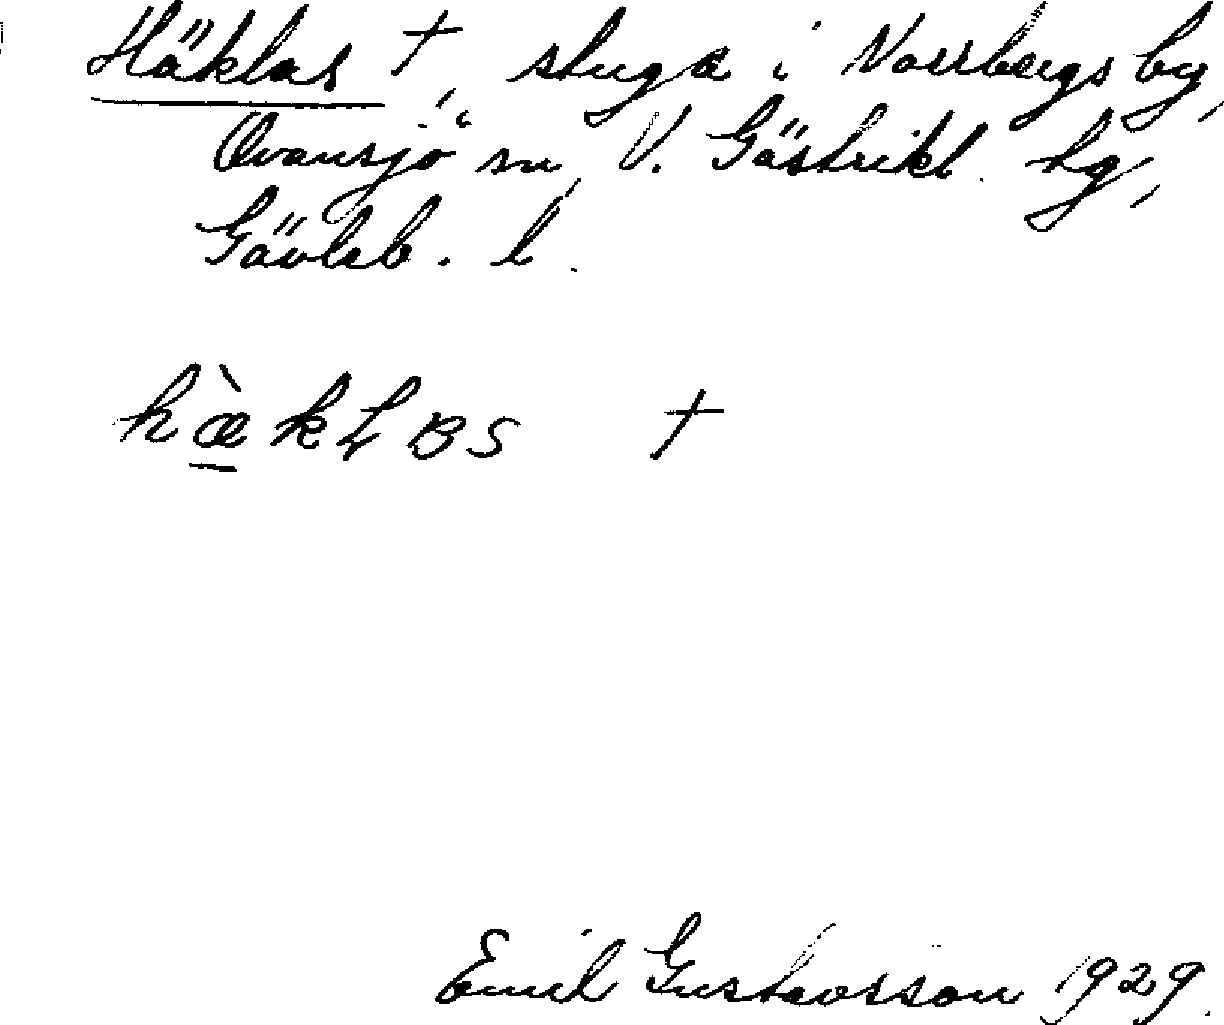 Häklas †, stuga i Norrbergs by,
Ovansjö sn, V. Gästrikl. hg,
Gävleb. l.
hæ̀kLBS †
Emil Gustavsson 1929.